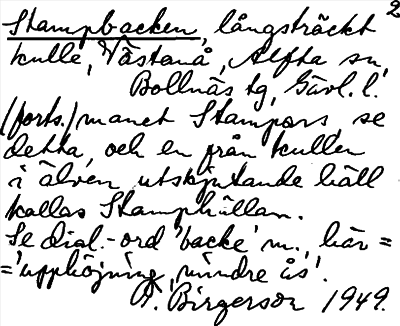 2
Stampbacken, långsträckt
kulle, Västanå, Alfta sn,
Bollnäs tg, Gävl. l.
(forts.) manet Stampors, se
detta, och en från kullen
i älven utskjutande häll
kallas Stamphällan.
Se dial.-ord 'backe' m., här =
= 'upphöjning, mindre ås'.
A. Birgerson 1949.